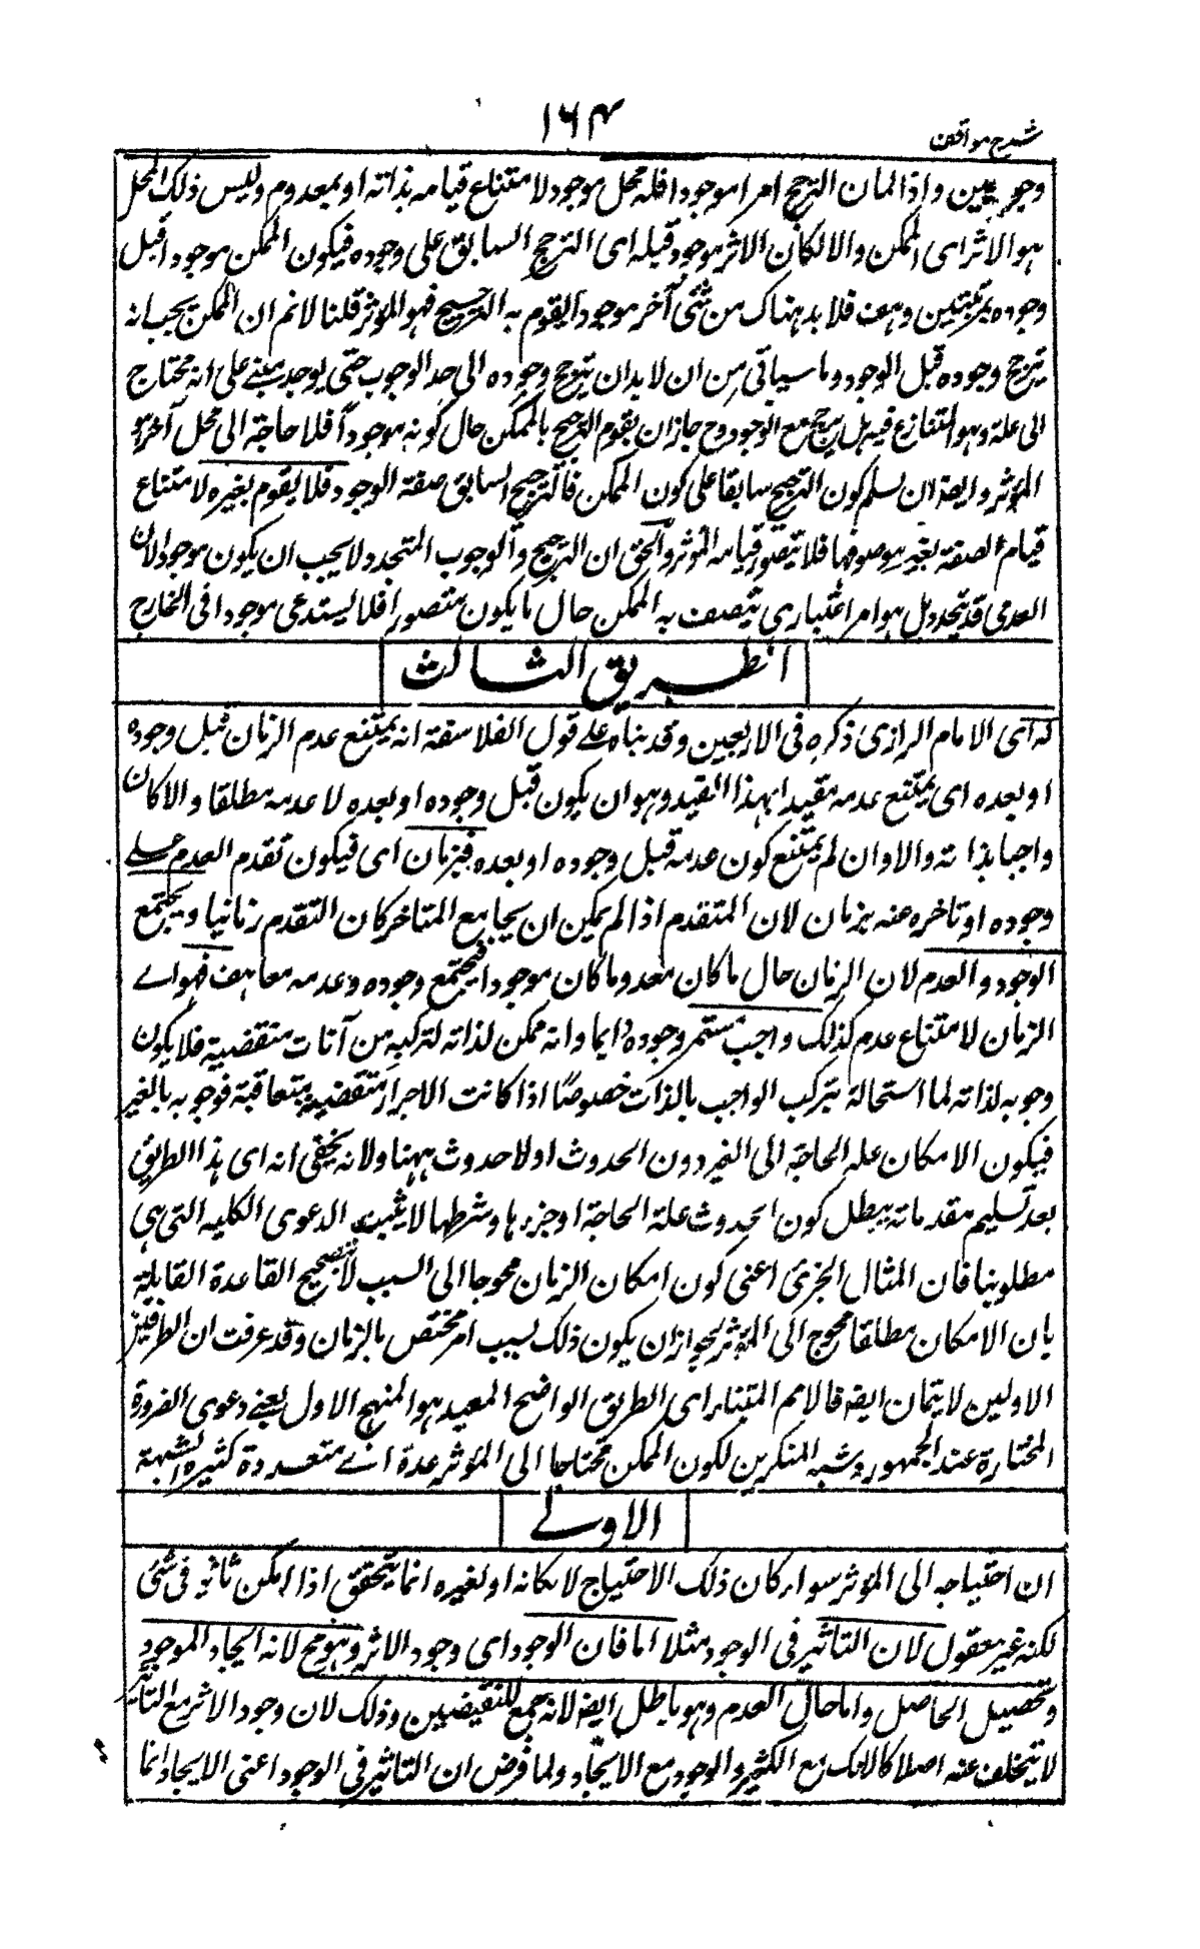 شرح مواقف
١٦٤
وجوديين واذا كان الترجح امرا موجودا فله محل موجود لامتناع قيامه بذاته او بمعدوم وليس ذلك المحل
هو الاثر اى الممكن والا لكان الاثر موجود قبله اى الترجح السابق على وجوده فيكون الممكن موجودا قبل
وجوده بمرتبتين وهف فلا بد هناك من شئ آخر موجود يقوم به الترجيح فهو المؤثر قلنا لانم ان الممكن يجب انه
يترجح وجوده قبل الوجود وما سياتى من ان لا بد ان يترجح وجوده الى حد الوجوب حتى يوجد مبنے على انه محتاج
الى علة وهو المتنازع فيه بل يترجح مع الوجود وح جاز ان يقوم الترجيح بالممكن حال كونه موجوداً فلا حاجة الى محل آخر هو
المؤثر وايضا ان سلم كون الترجيح سابقا على كون الممكن فالترجيح السابق صفة الوجود فلا يقوم بغيره لامتناع
قيام الصفة بغير موصوفها فلا يتصور قيامه المؤثر والحق ان الترجيح والوجوب المتجدد لا يجب ان يكون موجودا لان
العدمى قد يتجدد بل هو امر اعتبارى يتصف به الممكن حال ما يكون متصورا فلا يستدعى موجودا فى الخارج
الطريق الثالث
له اى الامام الرازى ذكره فى الاربعين وقد بناه علے قول الفلاسفة انه يمتنع عدم الزمان قبل وجوده
او بعده اى يمتنع عدمه مقيدا بهذا القيد وهو ان يكون قبل وجوده او بعده لا عدمه مطلقا والا كان
واجبا بذاته والا وان لم يمتنع كون عدمه قبل وجوده او بعده فبزمان اى فيكون تقدم العدم علے
وجوده او تاخره عنه بزمان لان المتقدم اذا لم يمكن ان يجامع المتاخر كان التقدم زمانيا ويجتمع
الوجود والعدم لان الزمان حال ما كان معدوما كان موجودا فيجتمع وجوده وعدمه معا هف فهو اے
الزمان لامتناع عدمه كذلك واجب مستمر وجوده دايما وانه ممكن لذاته لتركبه من آنات منقضية فلا يكون
وجوبه لذاته لما استحالة تركب الواجب بالذات خصوصًا اذا كانت الاجزاء متقضية متعاقبة فوجوبه بالغير
فيكون الامكان علة الحاجة الى الغير دون الحدوث اولا حدوث ههنا ولانه يخفى انه اى هذا الطريق
بعد تسليم مقدماته يبطل كون الحدوث علة الحاجة او جزءها وشرطها لا يثبت الدعوى الكلية التى هى
مطلوبنا فان المثال الجزئى اعنى كون امكان الزمان محوجا الى السبب لا تصحيح القاعدة القايلة
بان الامكان مطلقا محوج الى المؤثر لجواز ان يكون ذلك بسبب امر مختص بالزمان وقد عرفت ان الطرفين
الاولين لا يتمان ايضا فالامم الميتاء اى الطريق الواضح المعبد هو المنهج الاول يعنے دعوى الضرورة
المختارة عند الجمهور وشبه المنكرين لكون الممكن محتاجا الى المؤثر عدة اے متعددة كثيرة الشبهة
الاولے
ان احتياجه الى المؤثر سواء كان ذلك الاحتياج لامكانه او لغيره انما يتحقق اذا امكن تاثير فى شئ
لكنه غير معقول لان التاثير فى الوجود مثلا اما فان الوجود اى وجود الاثر وهو مح لانه ايجاد الموجود
وتحصيل الحاصل واما حال العدم وهو باطل ايضا لانه جمع للنقيضين وذلك لان وجود الاثر مع التاثير
لا يتخلف عنه اصلا كالانكسار مع الكسر والوجود مع الايجاد ولما فرض ان التاثير فى الوجود اعنى الايجاد انما